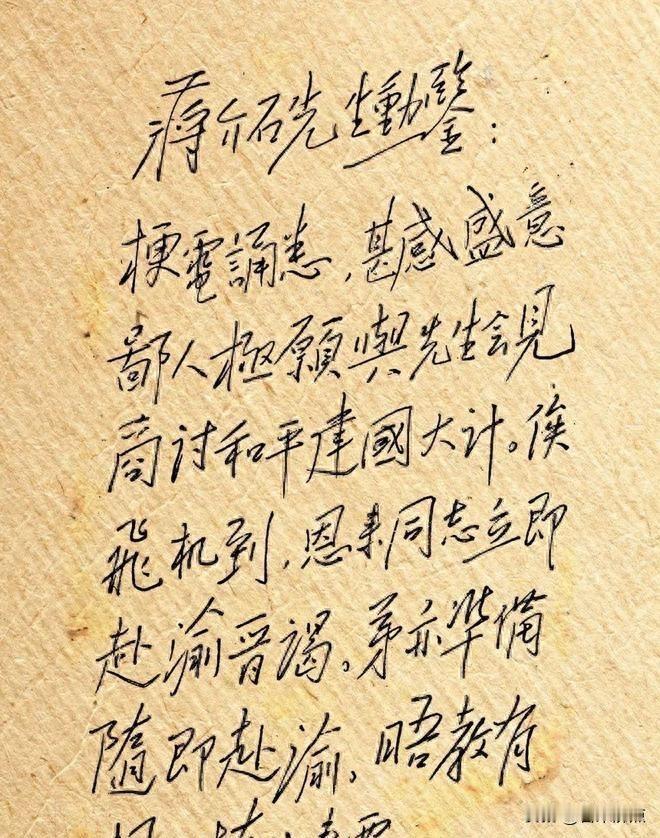 蒋介石先生勳鑒：
梗電誦悉，甚感盛意
鄙人極願與先生会見
商讨和平建國大计。俟
飛机到，恩来同志立即
赴渝晋謁。弟亦準備
隨即赴渝，晤教有